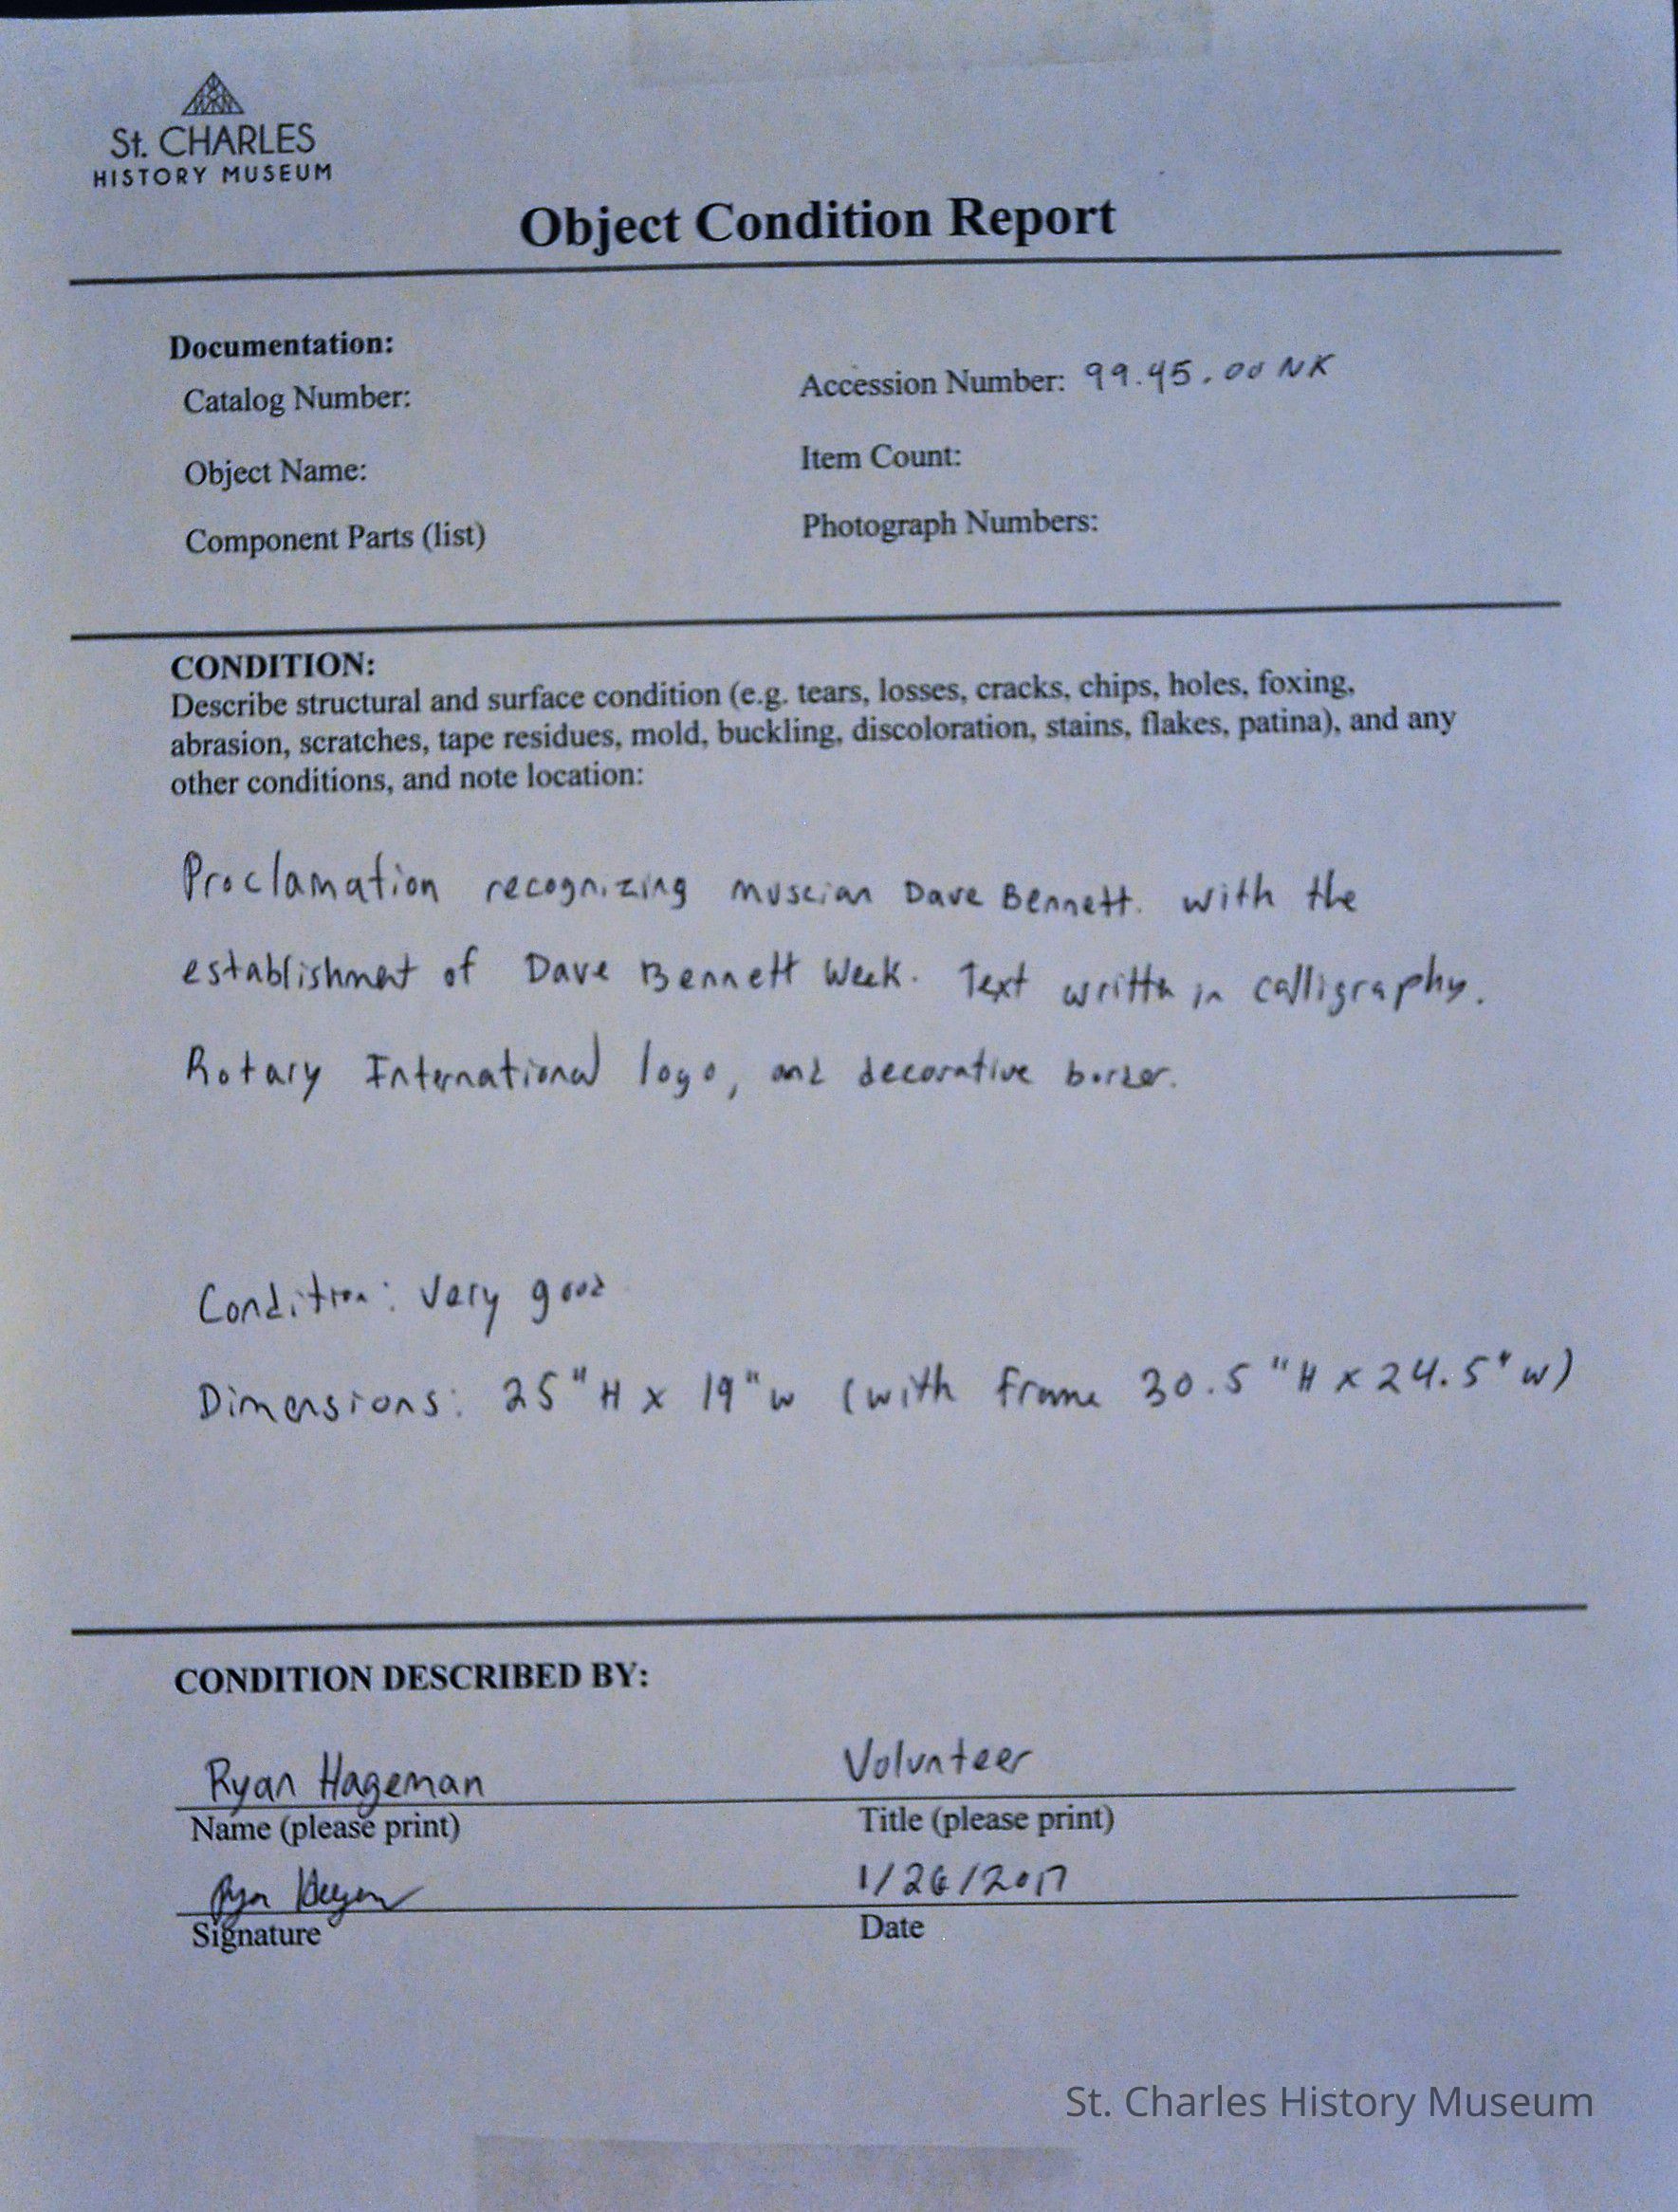 St. CHARLES
HISTORY MUSEUM
Object Condition Report
Documentation:
Catalog Number:
Accession Number: 99.45.00 NK
Object Name:
Item Count:
Component Parts (list)
Photograph Numbers:
CONDITION:
Describe structural and surface condition (e.g. tears, losses, cracks, chips, holes, foxing,
abrasion, scratches, tape residues, mold, buckling, discoloration, stains, flakes, patina), and any
other conditions, and note location:
Proclamation recognizing muscian Dave Bennett. with the
establishment of Dave Bennett Week. Text written in calligraphy.
Rotary International logo, and decorative border.
Condition: Very good
Dimensions: 25"H x 19"w (with frame 30.5"H x 24.5"w)
CONDITION DESCRIBED BY:
Ryan Hageman
Volunteer
Name (please print)
Title (please print)
Ryan Hageman
1/26/2017
Signature
Date
St. Charles History Museum